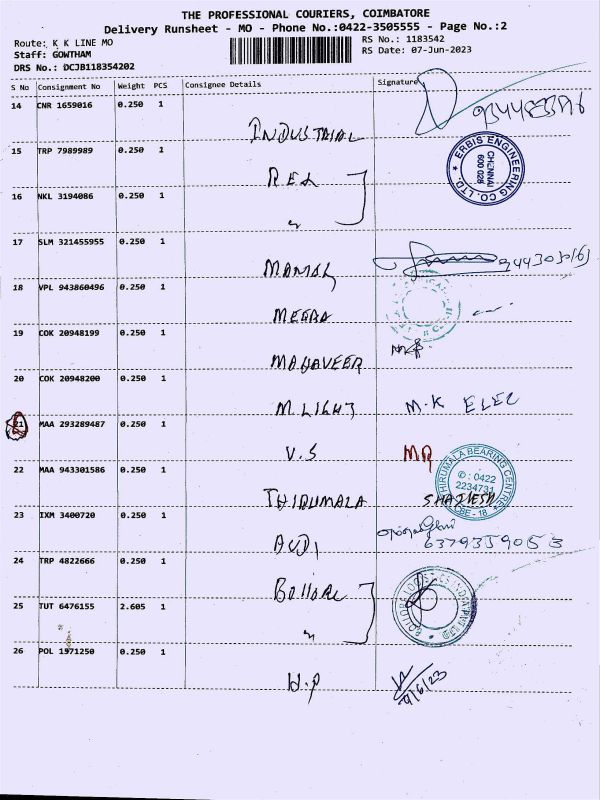 THE PROFESSIONAL COURIERS, COIMBATORE
Delivery Runsheet - MO - Phone No.:0422-3505555 - Page No.:2
Route: K K LINE MO
RS No.: 1183542
Staff: GOWTHAM
RS Date: 07-Jun-2023
DRS No.: DCJB118354202
S No Consignment No Weight PCS Consignee Details Signature
14 CNR 1659016 0.250 1
INDUSTRIAL
15 TRP 7989989 0.250 1
ERBIS ENGINEERING CO. LTD.
CHENNAI
600 026
16 NKL 3194086 0.250 1
17 SLM 321455955 0.250 1
18 VPL 943860496 0.250 1
MEERA
19 COK 20948199 0.250 1
MAHAVEER
20 COK 20948200 0.250 1
M.LIGHT M.K ELEC
21 MAA 293289487 0.250 1
V.S
22 MAA 943301586 0.250 1
THIRUMALA SHAILESH
THIRUMALA BEARING CENTRE
: 0422
2234731
CBE - 18
23 IXM 3400720 0.250 1
AUDI 6379359053
24 TRP 4822666 0.250 1
BOLLORE
25 TUT 6476155 2.605 1
26 POL 1971250 0.250 1
H.P